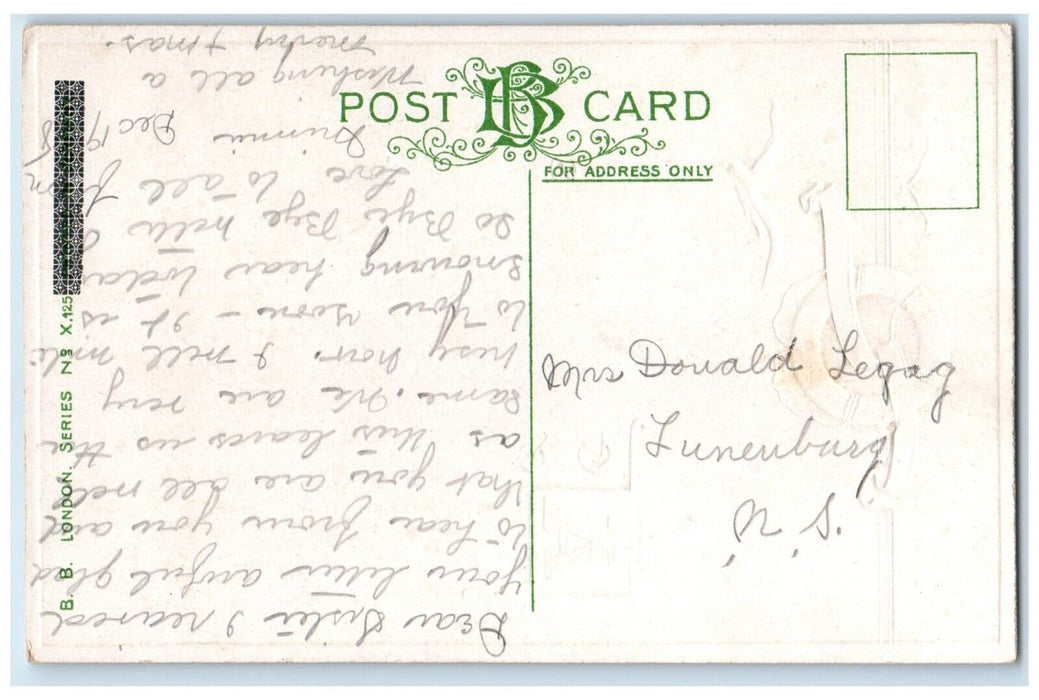 POST CARD
FOR ADDRESS ONLY
B. B. LONDON. SERIES No X.125
Mrs Donald Legag
Lunenburg
N. S.
Dear Sister I reaused
your letter awful glad
to hear from you and
that you are all well
as this leaves us the
same. We are very
busy hav. I will write
to you soon - It is
snowing hear today
So Bye Bye
Love to all from
Dec 19
Wishing all a
Merry Xmas.